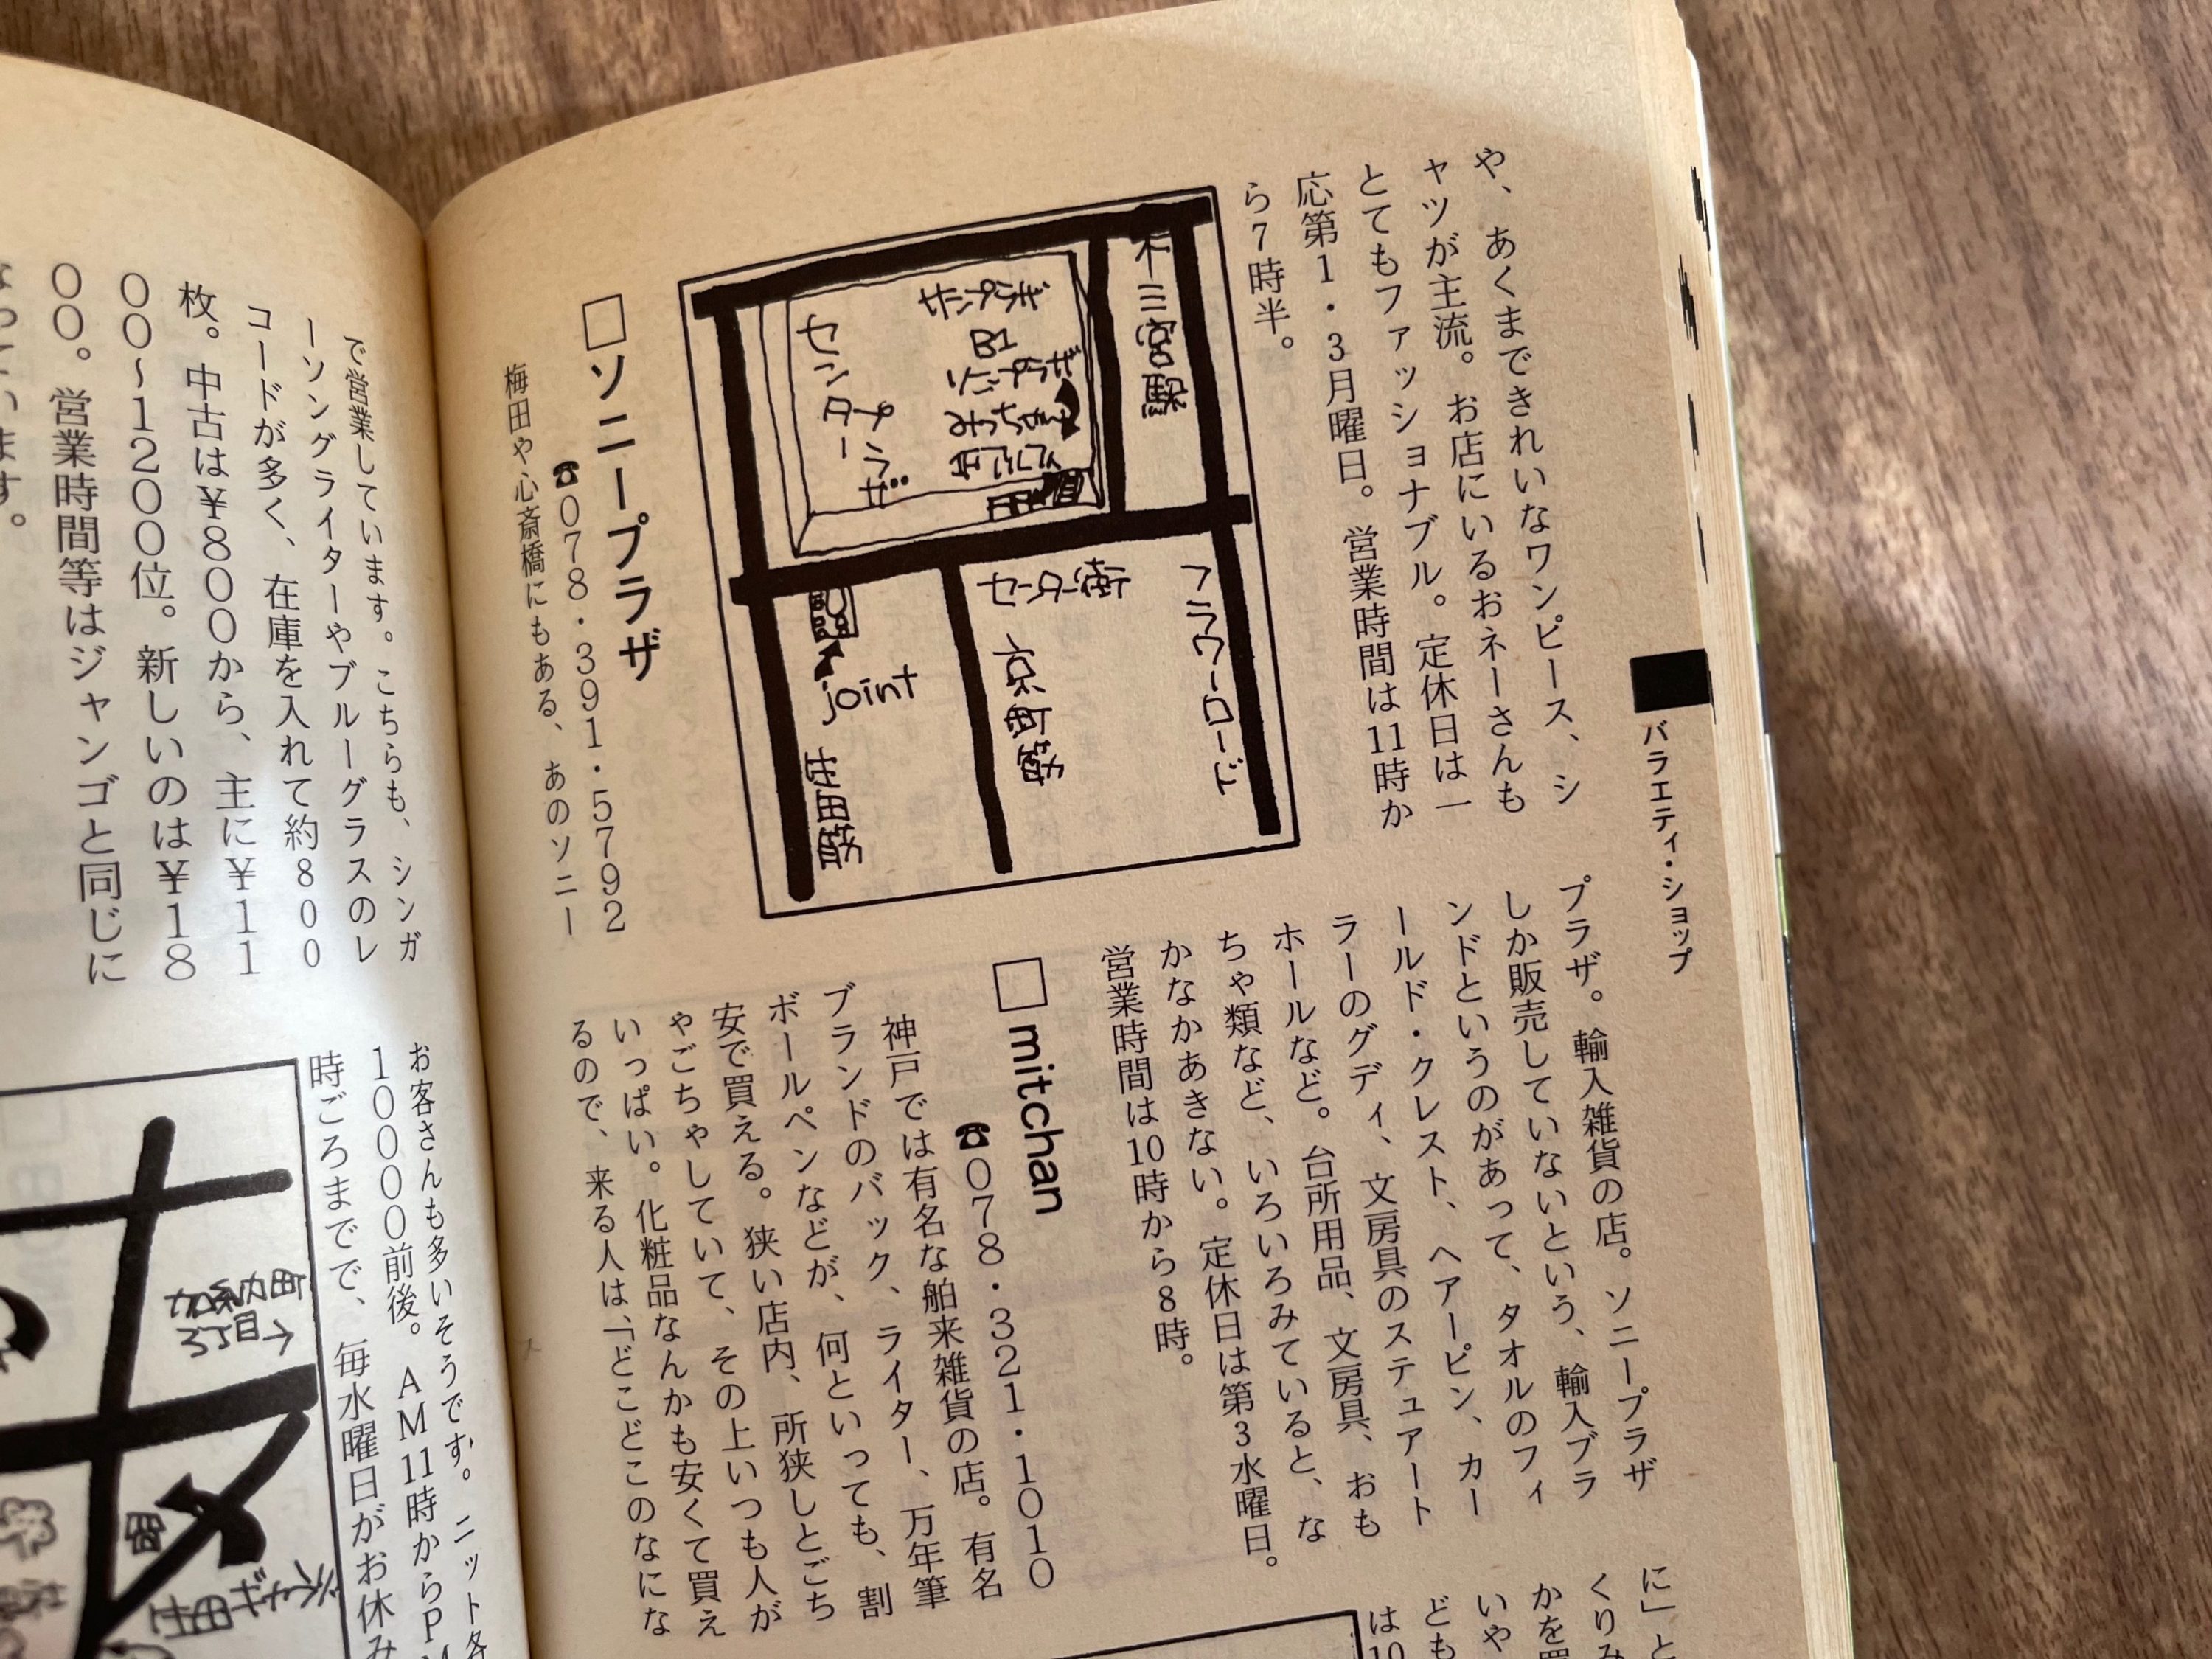 バラエティ・ショップ
や、あくまできれいなワンピース、シ
ャツが主流。お店にいるおネーさんも
とてもファッショナブル。定休日は一
応第1・3月曜日。営業時間は11時か
ら7時半。
三宮駅
さんプラザ
B1
ソニープラザ
センタープラザ
フラワーロード
センター街
京町筋
joint
生田筋
□ソニープラザ
☎078・391・5792
梅田や心斎橋にもある、あのソニー
プラザ。輸入雑貨の店。ソニープラザ
しか販売していないという、輸入ブラ
ンドというのがあって、タオルのフィ
ールド・クレスト、ヘアーピン、カー
ラーのグディ、文房具のステュアート
ホールなど。台所用品、文房具、おも
ちゃ類など、いろいろみていると、な
かなかあきない。定休日は第3水曜日。
営業時間は10時から8時。
□mitchan
☎078・321・1010
神戸では有名な舶来雑貨の店。有名
ブランドのバック、ライター、万年筆
ボールペンなどが、何といっても、割
安で買える。狭い店内、所狭しとごち
ゃごちゃしていて、その上いつも人が
いっぱい。化粧品なんかも安くて買え
るので、来る人は、「どこどこのなにな
に」と
くりみ
かを買
いや
ども
は10
で営業しています。こちらも、シンガ
ーソングライターやブルーグラスのレ
コードが多く、在庫を入れて約800
枚。中古は¥800から、主に¥11
00〜1200位。新しいのは¥18
00。営業時間等はジャンゴと同じに
なっています。
お客さんも多いそうです。ニット各
10000前後。AM11時からP
時ごろまでで、毎水曜日がお休み
加納町
3丁目→